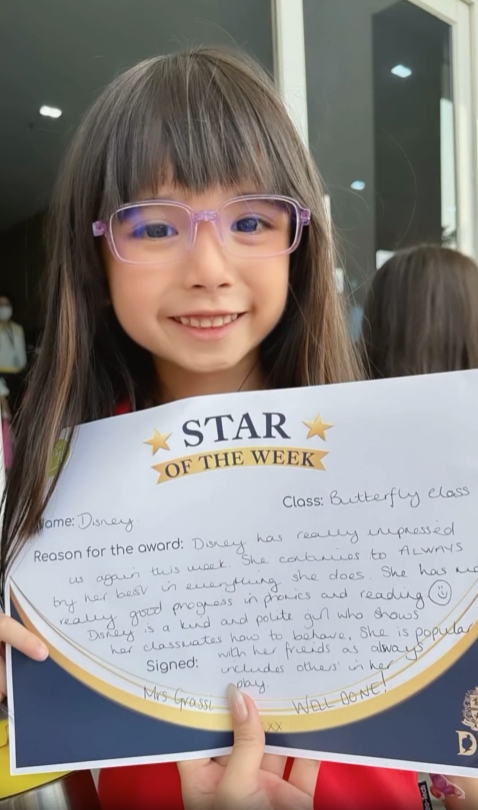 STAR
OF THE WEEK
Class: Butterfly class
Name: Disney
Reason for the award: Disney has really impressed
us again this week. She continues to ALWAYS
try her best in everything she does. She has
really good progress in phonics and reading
Disney is a kind and polite girl who shows
her classmates how to behave. She is popular
with her friends as always
includes others in her
play
Signed:
Mrs Grassi
WELL DONE!
xx
D